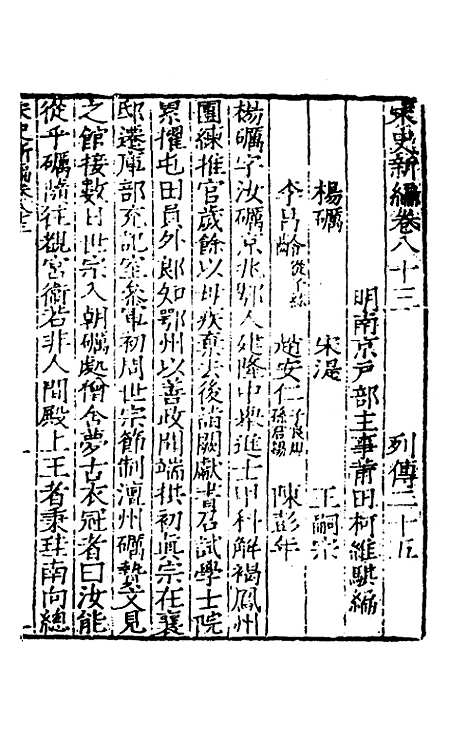 宋史新編卷八十三 列傳二十五
明南京戶部主事莆田柯維騏編
楊礪 宋湜 王嗣宗
李昌齡從子紘 趙安仁子良規 孫君錫 陳彭年
楊礪字汝礪京兆鄠人建隆中舉進士甲科解褐鳳州
團練推官歲餘以母疾棄去後詣闕獻書召試學士院
累擢屯田員外郎知鄂州以善政聞端拱初眞宗在襄
邸遷庫部充記室參軍初周世宗節制澶州礪贄文見
之館接數日世宗入朝礪處僧舍夢古衣冠者曰汝能
從乎礪隨往觀宮衛若非人間殿上王者秉珪南向總
宋史新編卷八十三 一